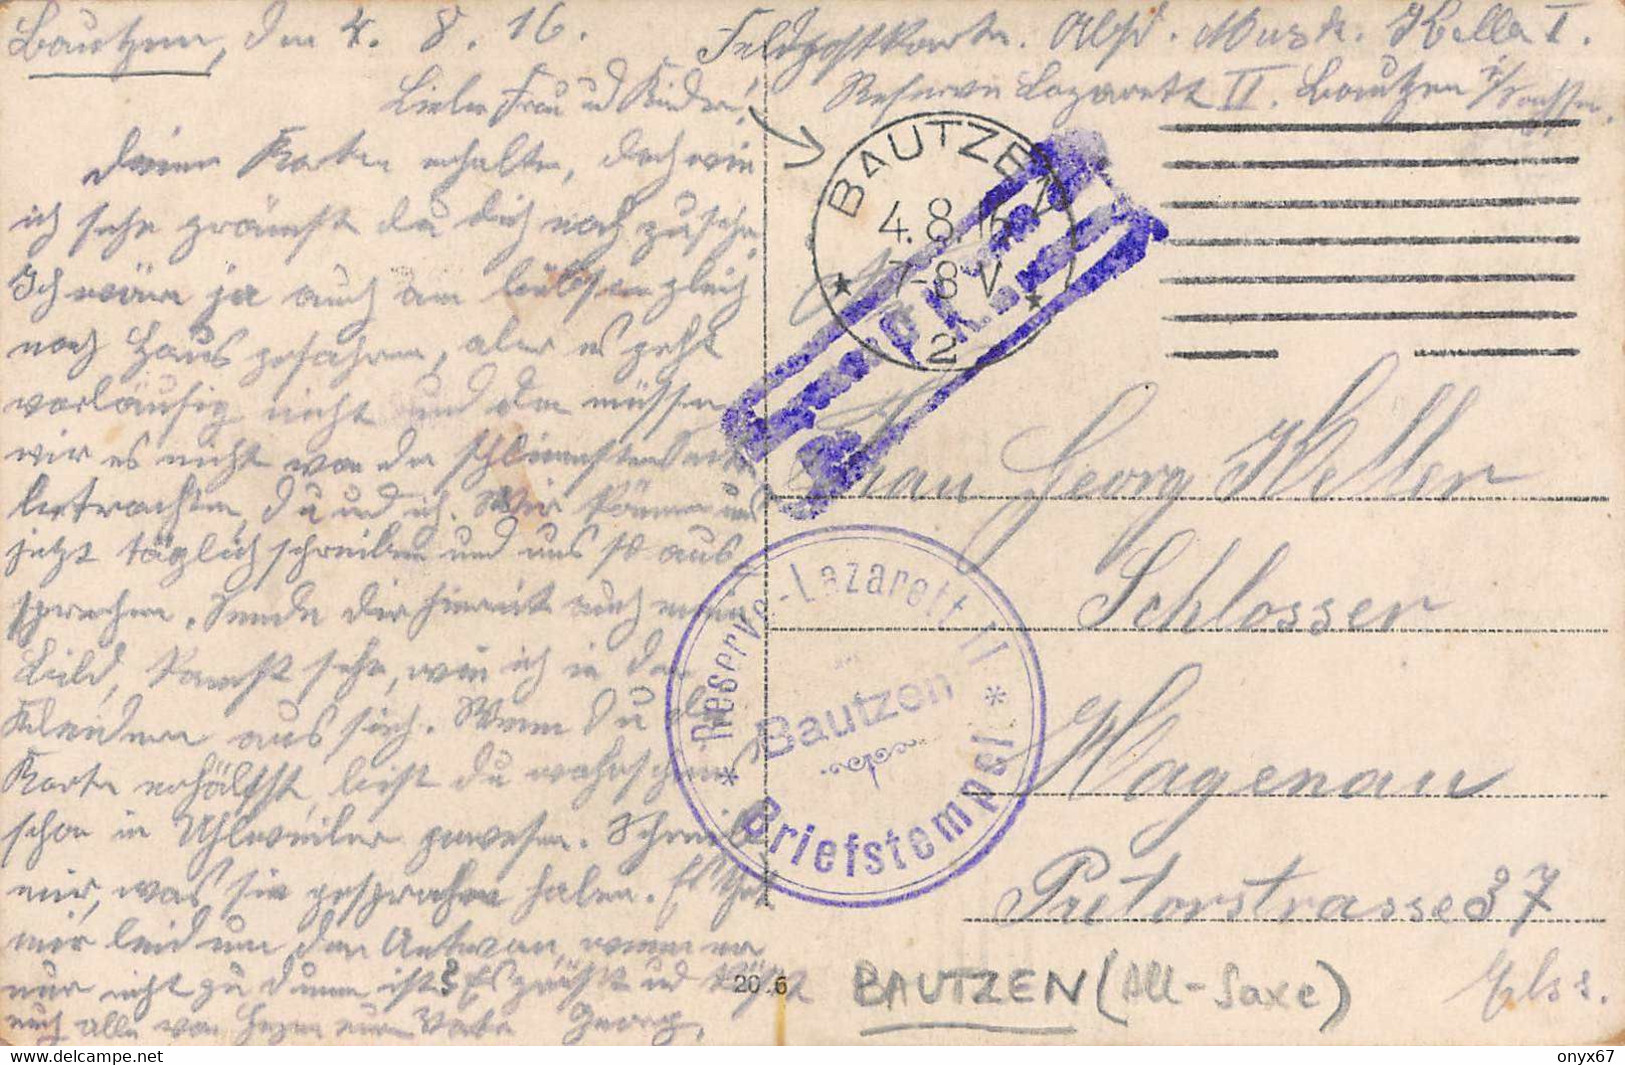 Bautzen, den 4. 8. 16.
Feldpostkarte. Absd. Musk. Keller I.
Reserve Lazarett II. Bautzen i/Sachsen.
Liebe Frau u Kinder!
Deine Karten erhalten, doch wie
ich sehe grämst du dich noch zu sehr.
Ich wäre ja auch am liebsten gleich
nach Haus gefahren, aber es geht
vorläufig nicht und da müssen
wir es nicht von der schlimmsten Seite
betrachten, du und ich. Wir können uns
jetzt täglich schreiben und uns so aus-
sprechen. Sende dir hiermit auch mein
Bild, kannst sehn, wie ich in den
Kleidern aus sieh. Wenn du die
Karte erhälst, bist du wahrscheinl.
schon in Uhlweiler gewesen. Schreibe
mir, was sie gesprochen haben. Es thut
mir leid um den, wenn er
nur nicht zu dumm ist. Es grüßt und küßt
euch alle von Herzen euer Vater Georg.
BAUTZEN
4.8.16
7-8 V.
2
Frau Georg Keller
Schlosser
Hagenau
37
Els.
Reserve-Lazarett II
Bautzen
Briefstempel
20 6
BAUTZEN (All-Saxe)
onyx67
https://www.delcampe.net